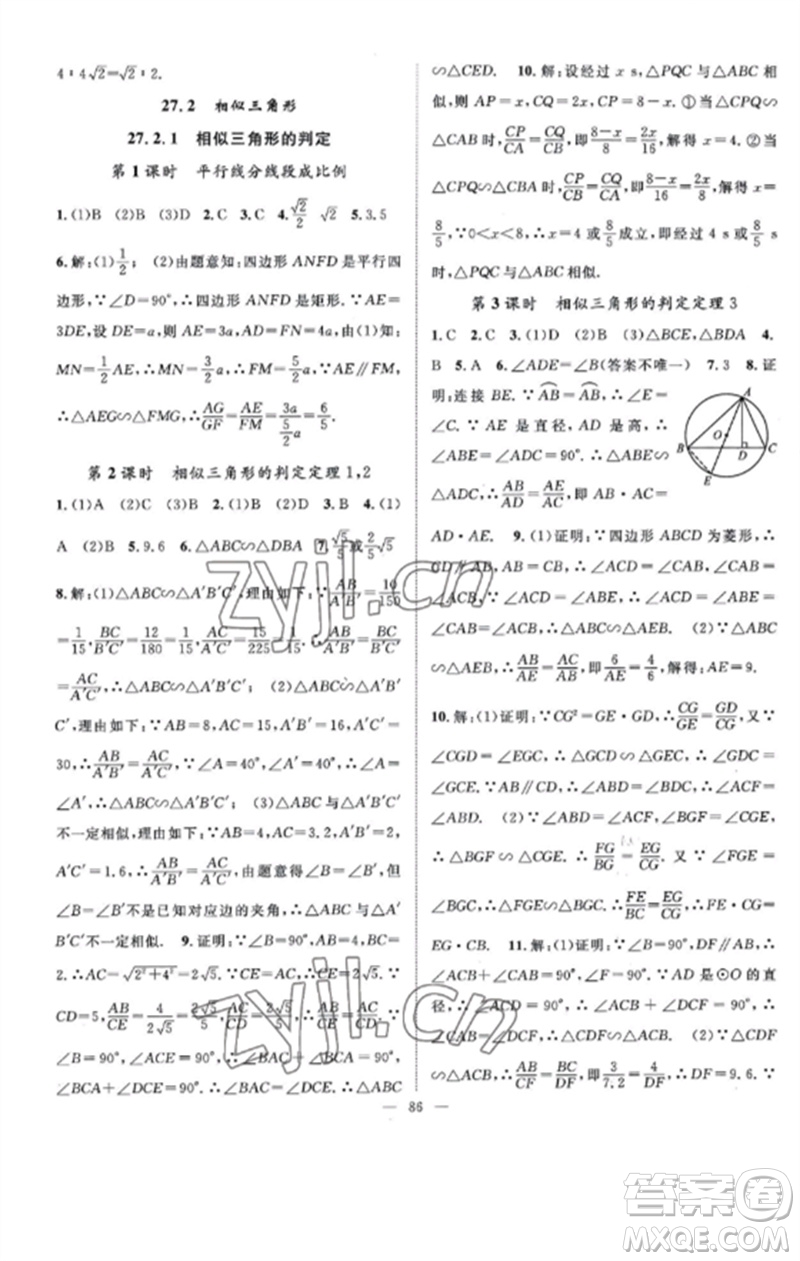 4∶4√2=√2∶2.
27.2 相似三角形
27.2.1 相似三角形的判定
第1课时 平行线分线段成比例
1.(1)B (2)B (3)D 2.C 3.C 4.√2/2 √2 5.3.5
6.解:(1)1/2; (2)由题意知:四边形 ANFD 是平行四
边形,∵∠D=90°,∴四边形 ANFD 是矩形.∵AE=
3DE,设 DE=a,则 AE=3a,AD=FN=4a,由(1)知:
MN=1/2 AE,∴MN=3/2 a,∴FM=5/2 a.∵AE∥FM,
∴△AEG∽△FMG,∴AG/GF=AE/FM=3a/(5/2 a)=6/5.
第2课时 相似三角形的判定定理1,2
1.(1)A (2)C (3)B 2.B 3.B 4.(1)
A (2)B 5.9.6 6.△ABC∽△DBA 7.√5/5或2/5√5
8.解:(1)△ABC∽△A′B′C′,理由如下:∵AB/A′B′=10/150
=1/15,BC/B′C′=12/180=1/15,AC/A′C′=15/225=1/15.∴AB/A′B′=BC/B′C′
=AC/A′C′,∴△ABC∽△A′B′C′; (2)△ABC∽△A′B′
C′,理由如下:∵AB=8,AC=15,A′B′=16,A′C′=
30,∴AB/A′B′=AC/A′C′,∵∠A=40°,∠A′=40°,∴∠A=
∠A′,∴△ABC∽△A′B′C′; (3)△ABC 与△A′B′C′
不一定相似,理由如下:∵AB=4,AC=3.2,A′B′=2,
A′C′=1.6,∴AB/A′B′=AC/A′C′,由题意得∠B=∠B′,但
∠B=∠B′不是已知对应边的夹角,∴△ABC 与△A′
B′C′不一定相似. 9.证明:∵∠B=90°,AB=4,BC=
2.∴AC=√(2²+4²)=2√5.∵∠B=90°,AB=4,BC=2,
CD=5,AB/CE=4/2√5=2√5/5,
∠B=90°,∠DCE=90°,∴
∠BCA+∠DCE=90°,∴∠BAC=∠DCE.∴△ABC
∽△CED. 10.解:设经过 x s,△PQC 与△ABC 相
似,则 AP=x,CP=8-x,CQ=2x. ①当△CPQ∽
△CAB 时,CP/CA=CQ/CB,即(8-x)/8=2x/16,解得 x=4. ②当
△CPQ∽△CBA 时,CP/CB=CQ/CA,即(8-x)/16=2x/8,解得 x=
8/5,∵0<x<8,∴x=4 或 8/5 成立,即经过 4 s 或 8/5
s 时,△PQC 与△ABC 相似.
第3课时 相似三角形的判定定理3
1.C 2.C 3.(1)D (2)△BCE,△BDA 4.
B 5.A 6.∠ADE=∠B(答案不唯一) 7.3 8.证
明:连接 BE.∵AB=AB,∴∠E=
∠C.∵AE 是直径,AD 是高,∴
∠ABE=∠ADC=90°,∴△ABE∽
△ADC,∴AB/AD=AE/AC,∴AB·AC=
AD·AE. 9.(1)证明:∵四边形 ABCD 为菱形,∴
∠ACD=∠ACB,AB=BC,∴∠ACB=∠CAB,∴
∠ACD=∠CAB.∵∠ACD=∠ABE,∴∠ABE=
∠CAB=∠ACB,∴△ABC∽△AEB. (2)∵△ABC
∽△AEB,∴AB/AE=AC/AB,即6/AE=4/6,解得:AE=9.
10.解:(1)证明:∵CG²=GE·GD,∴CG/GE=GD/CG,又∵
∠CGD=∠EGC,∴△GCD∽△GEC,∴∠GDC=
∠GCE.∵AB∥CD,∴∠ABD=∠GDC,∴∠ACF=
∠ABD. (2)∵∠ABD=∠ACF,∠BGF=∠CGE,
∴△BGF∽△CGE.∴FG/BG=EG/CG.又∵∠FGE=
∠BGC,∴△FGE∽△BGC,∴FE/BC=EG/CG,∴FE·CG=
EG·CB. 11.解:(1)证明:∵∠B=90°,DF∥AB,∴
∠DFC=∠B=90°,∴∠D+∠DCF=90°,∵AD 是⊙O 的直
径,∴∠ACD=90°,∴∠ACB+∠DCF=90°,∴
∠ACB=∠D,∴△CDF∽△ACB. (2)∵△CDF
∽△ACB,∴AB/CF=BC/DF,即3/7.2=4/DF,∴DF=9.6.∵
A
O
B
D
C
E
86
zyjl.cn
zyjl.cn
答案卷